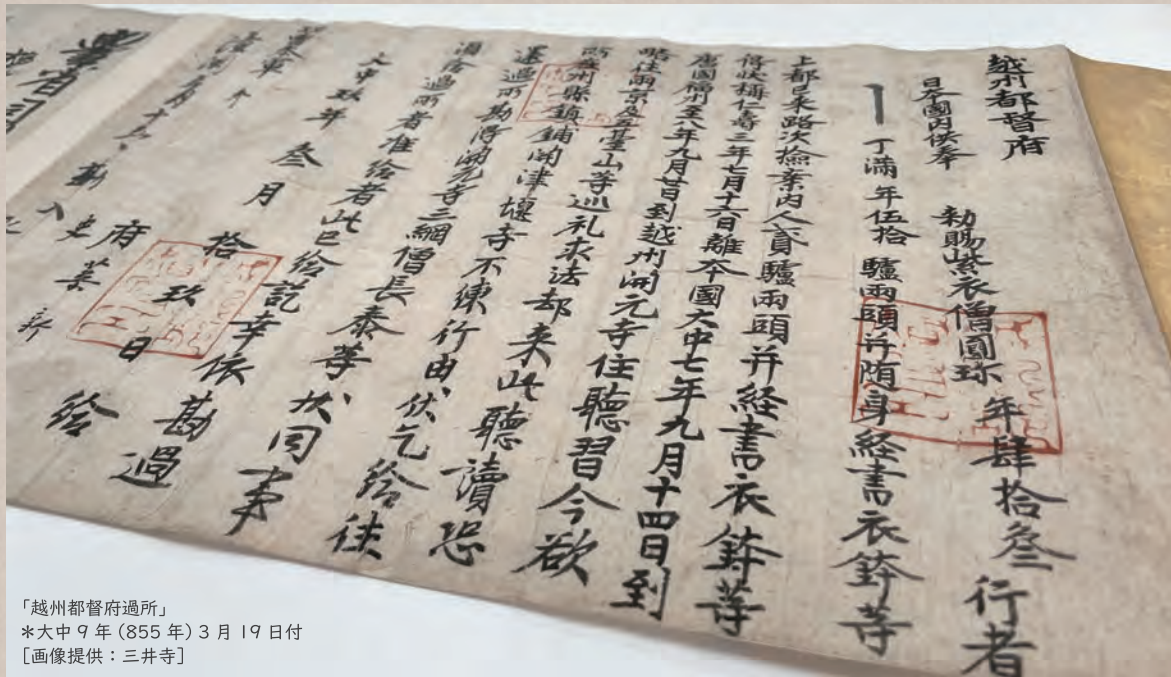 越州都督府
日本國内供奉 勅賜紫衣僧圓珎年肆拾叁 行者
丁滿年伍拾 驢兩頭并随身経書衣鉢等
上都已来路次撿案内人貳驢兩頭并経書衣鉢等
得状稱仁壽三年七月十六日離本國大中七年九月十四日到
唐國福州至八年九月廿日到越州開元寺住聽習今欲
略往兩京及五臺山等巡礼求法却来此聽讀恐
所在州縣鎮鋪關津堰寺不練行由伏乞給往
還過所勘得開元寺三綱僧長泰等状同事
須給過所者准給者此已給訖幸依勘過
大中玖年叁月拾玖日給
府葉新
史
「越州都督府過所」
*大中9年(855年)3月19日付
[画像提供:三井寺]